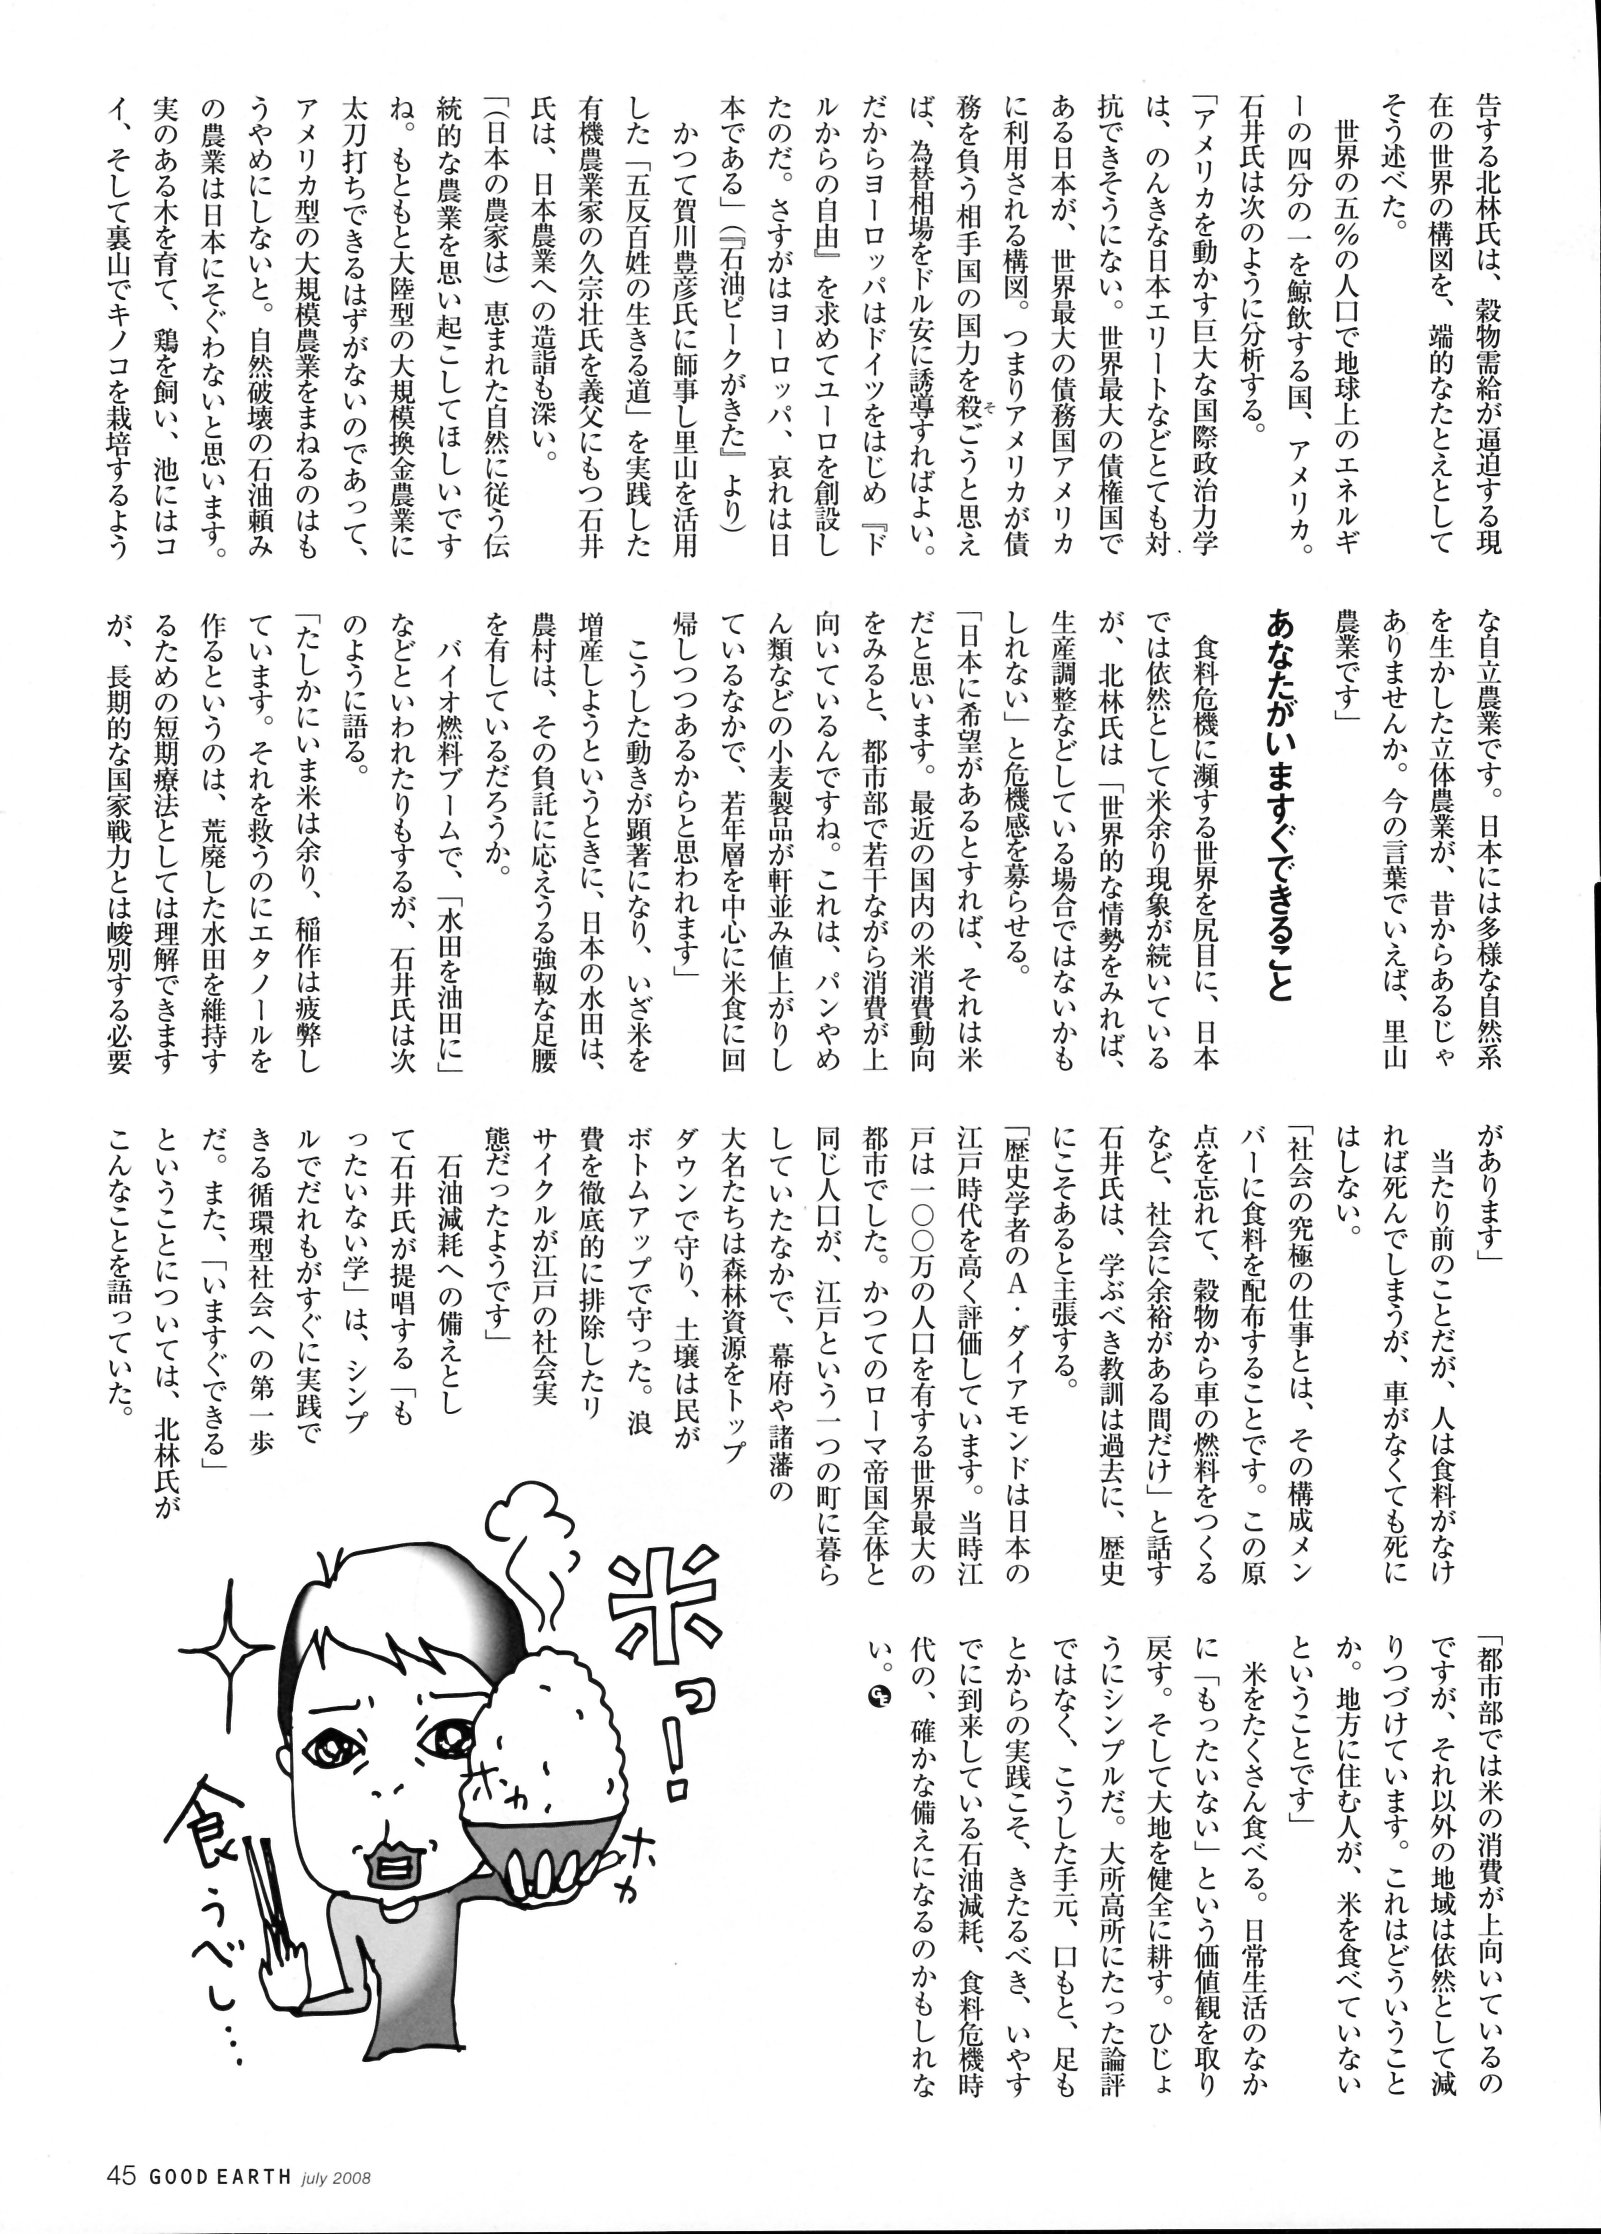 告する北林氏は、穀物需給が逼迫する現
在の世界の構図を、端的なたとえとして
そう述べた。
　世界の五%の人口で地球上のエネルギ
ーの四分の一を鯨飲する国、アメリカ。
石井氏は次のように分析する。
「アメリカを動かす巨大な国際政治力学
は、のんきな日本エリートなどとても対
抗できそうにない。世界最大の債権国で
ある日本が、世界最大の債務国アメリカ
に利用される構図。つまりアメリカが債
務を負う相手国の国力を殺そごうと思え
ば、為替相場をドル安に誘導すればよい。
だからヨーロッパはドイツをはじめ『ド
ルからの自由』を求めてユーロを創設し
たのだ。さすがはヨーロッパ、哀れは日
本である」（『石油ピークがきた』より）
　かつて賀川豊彦氏に師事し里山を活用
した「五反百姓の生きる道」を実践した
有機農業家の久宗壮氏を義父にもつ石井
氏は、日本農業への造詣も深い。
「（日本の農家は）恵まれた自然に従う伝
統的な農業を思い起こしてほしいです
ね。もともと大陸型の大規模換金農業に
太刀打ちできるはずがないのであって、
アメリカ型の大規模農業をまねるのはも
うやめにしないと。自然破壊の石油頼み
の農業は日本にそぐわないと思います。
実のある木を育て、鶏を飼い、池にはコ
イ、そして裏山でキノコを栽培するよう
な自立農業です。日本には多様な自然系
を生かした立体農業が、昔からあるじゃ
ありませんか。今の言葉でいえば、里山
農業です」
あなたがいますぐできること
　食料危機に瀕する世界を尻目に、日本
では依然として米余り現象が続いている
が、北林氏は「世界的な情勢をみれば、
生産調整などしている場合ではないかも
しれない」と危機感を募らせる。
「日本に希望があるとすれば、それは米
だと思います。最近の国内の米消費動向
をみると、都市部で若干ながら消費が上
向いているんですね。これは、パンやめ
ん類などの小麦製品が軒並み値上がりし
ているなかで、若年層を中心に米食に回
帰しつつあるからと思われます」
　こうした動きが顕著になり、いざ米を
増産しようというときに、日本の水田は、
農村は、その負託に応えうる強靱な足腰
を有しているだろうか。
　バイオ燃料ブームで、「水田を油田に」
などといわれたりもするが、石井氏は次
のように語る。
「たしかにいま米は余り、稲作は疲弊し
ています。それを救うのにエタノールを
作るというのは、荒廃した水田を維持す
るための短期療法としては理解できます
が、長期的な国家戦力とは峻別する必要
があります」
　当たり前のことだが、人は食料がなけ
れば死んでしまうが、車がなくても死に
はしない。
「社会の究極の仕事とは、その構成メン
バーに食料を配布することです。この原
点を忘れて、穀物から車の燃料をつくる
など、社会に余裕がある間だけ」と話す
石井氏は、学ぶべき教訓は過去に、歴史
にこそあると主張する。
「歴史学者のA・ダイアモンドは日本の
江戸時代を高く評価しています。当時江
戸は一〇〇万の人口を有する世界最大の
都市でした。かつてのローマ帝国全体と
同じ人口が、江戸という一つの町に暮ら
していたなかで、幕府や諸藩の
大名たちは森林資源をトップ
ダウンで守り、土壌は民が
ボトムアップで守った。浪
費を徹底的に排除したリ
サイクルが江戸の社会実
態だったようです」
　石油減耗への備えとし
て石井氏が提唱する「も
ったいない学」は、シンプ
ルでだれもがすぐに実践で
きる循環型社会への第一歩
だ。また、「いますぐできる」
ということについては、北林氏が
こんなことを語っていた。
「都市部では米の消費が上向いているの
ですが、それ以外の地域は依然として減
りつづけています。これはどういうこと
か。地方に住む人が、米を食べていない
ということです」
　米をたくさん食べる。日常生活のなか
に「もったいない」という価値観を取り
戻す。そして大地を健全に耕す。ひじょ
うにシンプルだ。大所高所にたった論評
ではなく、こうした手元、口もと、足も
とからの実践こそ、きたるべき、いやす
でに到来している石油減耗、食料危機時
代の、確かな備えになるのかもしれな
い。GE
米っー!!
ホカ
ホカ
食うべし…
45 GOOD EARTH july 2008